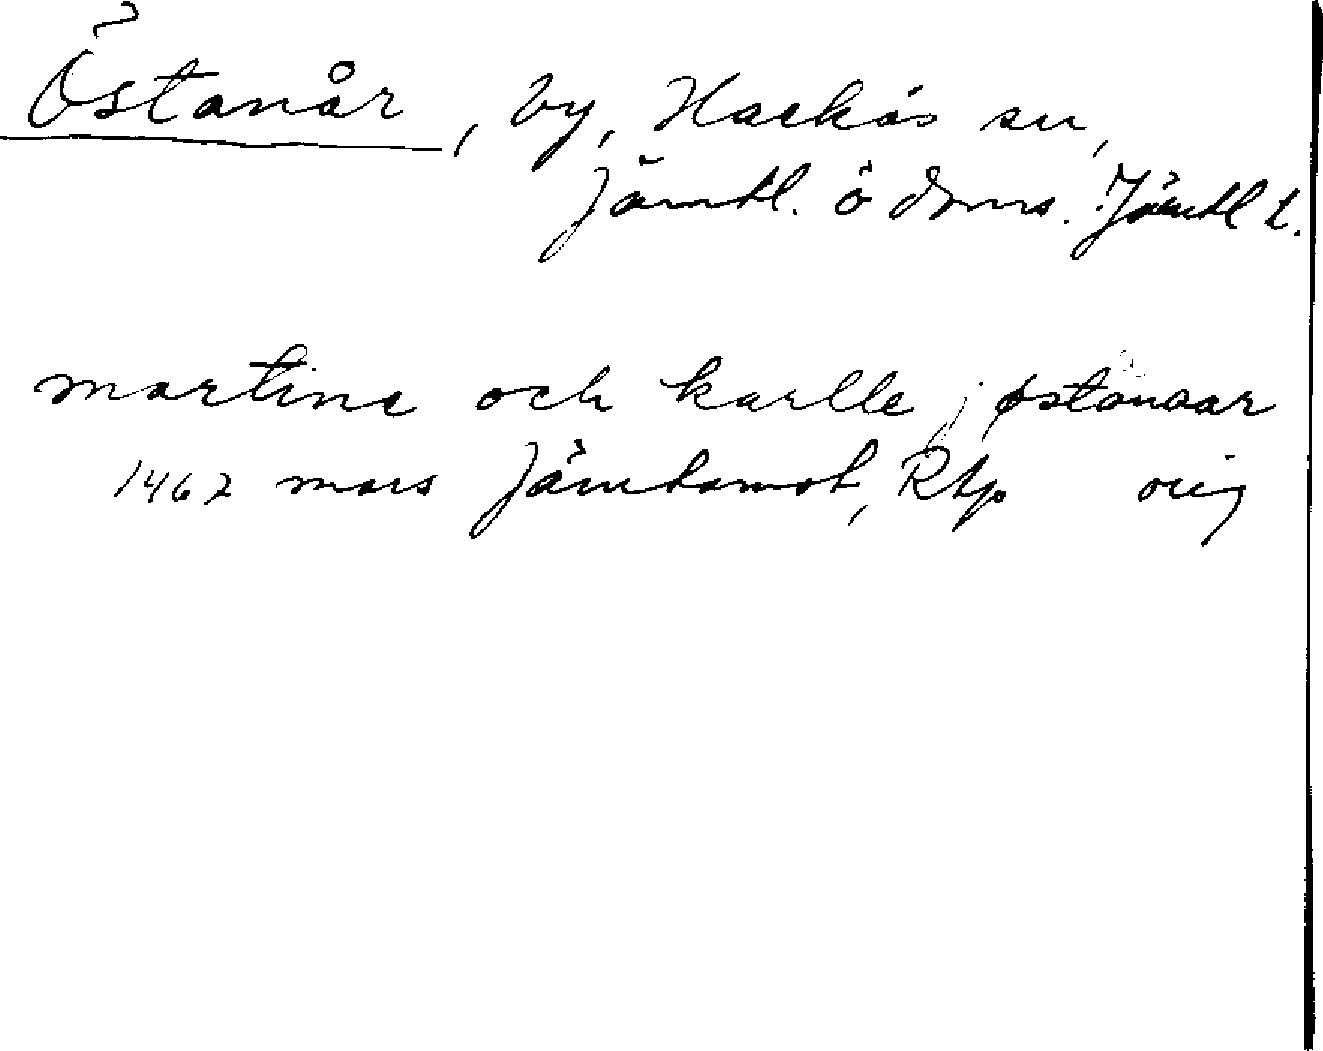 Östanår, by, Hackås sn,
Jämtl. ö doms. Jämtl l.
martine och karlle j østanaar
1462 mars Jämtamot, Rtp orig